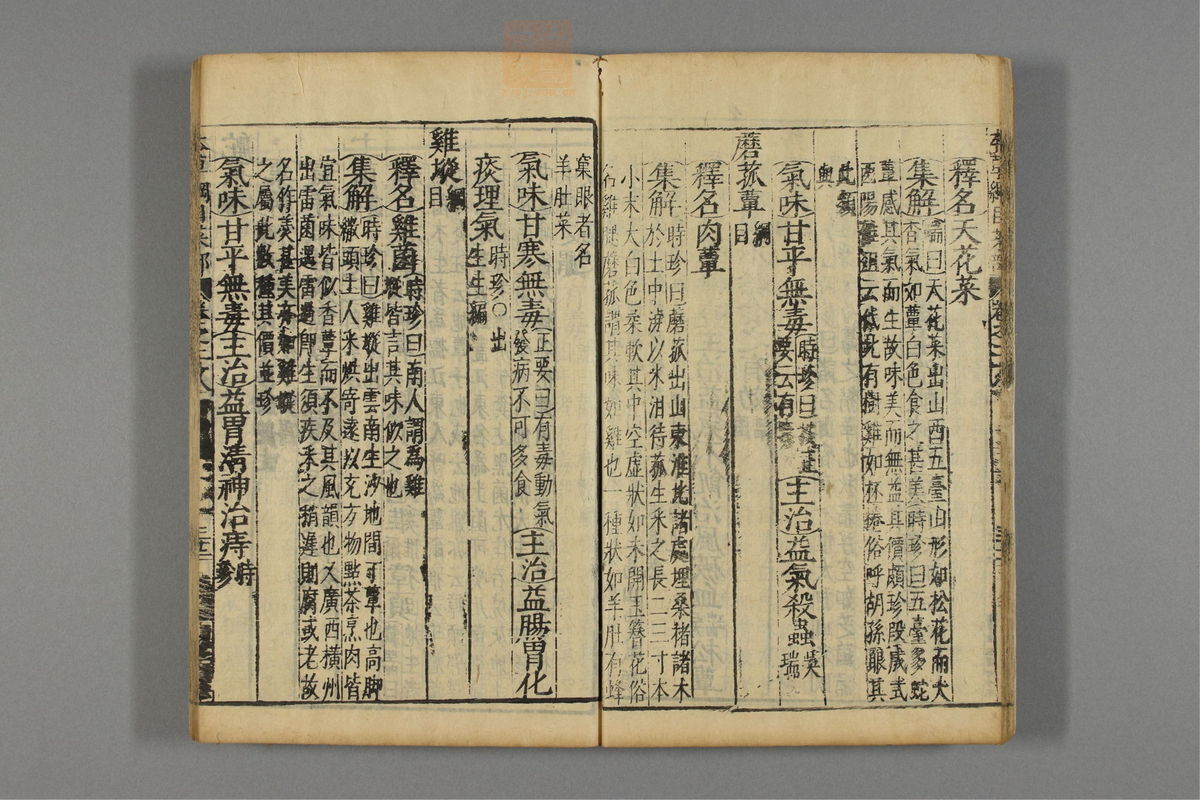 釋名天花菜
集解瑞曰天花菜出山西五臺山形如松花而大
香氣如蕈白色食之甚美時珍曰五臺多蛇
蕈感其氣而生故味美而無益其價頗珍段成式
酉陽雜俎云代北有樹雞如杯棬俗呼胡孫眼其
此類
與
氣味甘平無毒時珍曰
要云有毒
主治益氣殺蟲吳
瑞
蘑菰蕈綱
目
釋名肉蕈
集解時珍曰蘑菰出山東淮北諸處埋桑楮諸木
於土中澆以米泔待菰生采之長二三寸本
小末大白色柔軟其中空虛狀如未開玉簪花俗
名雞腿蘑菰謂其味如雞也一種狀如羊肚有蜂
窠眼者名
羊肚菜
氣味甘寒無毒正要曰有毒動氣
發病不可多食
主治益腸胃化
痰理氣時珍○出
生生編
雞㙡綱
目
釋名雞菌時珍曰南人謂為雞
㙡皆言其味似之也
集解時珍曰雞㙡出雲南生沙地間丁蕈也高脚
繖頭土人采烘寄遠以充方物點茶烹肉皆
宜氣味皆似香蕈而不及其風韻也又廣西橫州
出雷菌遇雷過即生須疾采之稍遲則腐或老故
名作羹甚美亦如雞㙡
之屬此數種其價並珍
氣味甘平無毒主治益胃清神治痔時
珍